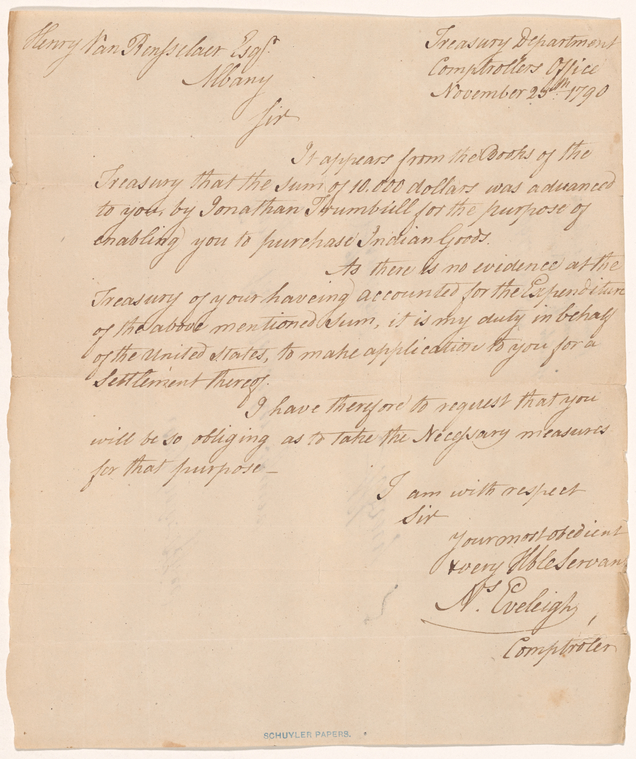 Henry Van Rensselaer Esqr.
Albany
Treasury Department
Comptrollers Office
November 25th 1790
Sir
It appears from the Books of the
Treasury that the sum of 10.000 dollars was advanced
to you, by Jonathan Trumbull for the purpose of
enabling you to purchase Indian Goods.
As there is no evidence at the
Treasury of your haveing accounted for the Expenditure
of the above mentioned sum, it is my duty in behalf
of the United States, to make application to you for a
Settlement thereof.
I have therefore to request that you
will be so obliging as to take the Necessary measures
for that purpose—
I am with respect
Sir
your most obedient
& very Hble Servan
Ns. Eveleigh,
Comptroler
SCHUYLER PAPERS.